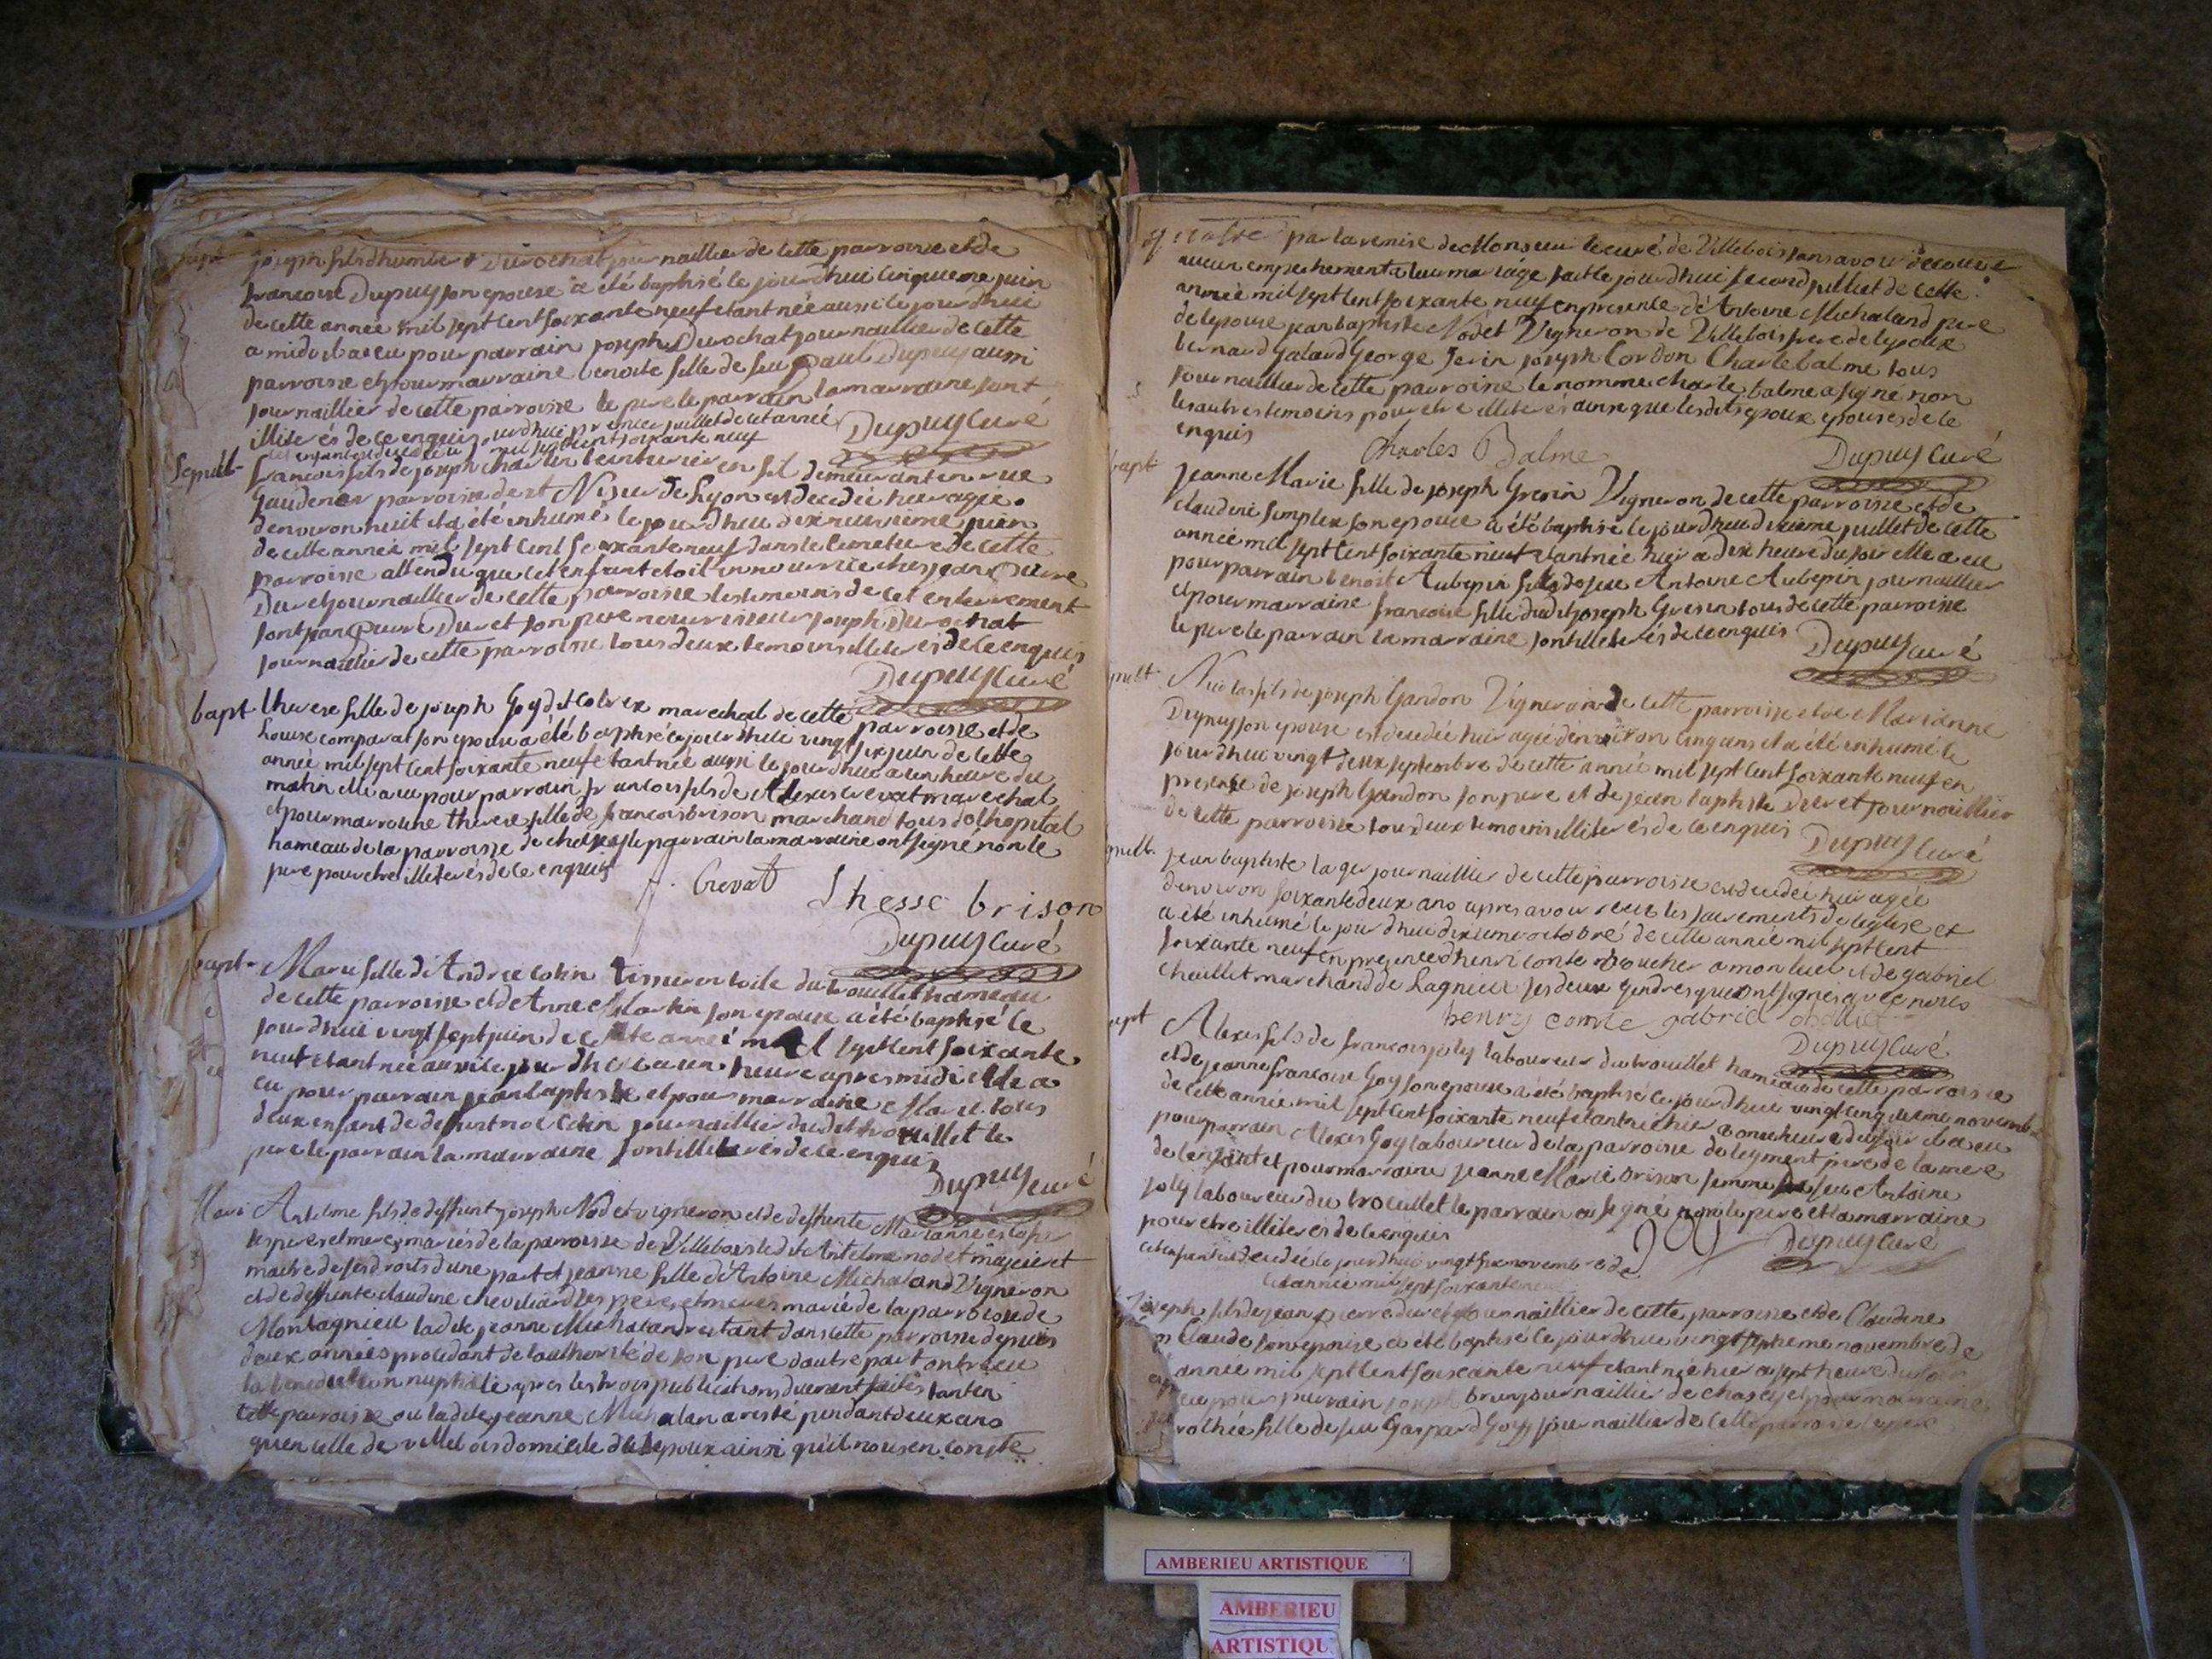 bapt
joseph fils d'humbert Durochat journaillier de cette parroisse et de
francoise Dupuy son epouse a été baptisé le jourdhui cinquieme juin
de cette année mil sept cent soixante neuf etant née aussi le jourdhui
a midi il a eu pour parrain joseph Durochat journaillier de cette
parroisse et pour marraine benoite fille de feu paul Dupuy aussi
journaillier de cette parroisse le pere le parrain la marraine sont
illiterés de ce enquis
Dupuy Curé
cet enfant est decedé jourdhui premier juillet de cet année
mil sept cent soixante neuf
Sepult
francois fils de joseph charlin teinturier en fil demeurant en rue
parroisse de st Nisier de Lyon est decedée hier agée
denviron huit et a été inhumé le jourdhui dix neuvieme juin
de cette année mil sept cent soixante neuf dans le cimetiere de cette
parroisse attendu que cet enfant etoit en nourrice ches jean pierre
Duret journaillier de cette parroisse les temoins de cet enterrement
sont jean pierre Duret son pere nourrissier joseph Durochat
journaillier de cette parroisse tous deux temoins illiterés de ce enquis
Dupuy Curé
bapt
therese fille de joseph Goy dit Colrex marechal de cette parroisse et de
Louise comparat son epouse a été baptisé ce jourdhui vingt six juin de cette
année mil sept cent soixante neuf etant née aussi le jourdhui a un heure du
matin elle a eu pour parrain francois fils de Alexis crevat marechal
et pour marraine therese fille de francois brison marchand tous de lhopital
hameau de la parroisse de chazey le parrain la marraine ont signé non le
pere pour etre illiterés de ce enquis
f. Crevat
thesse brison
Dupuy Curé
bapt
Marie fille de André cotin tisseur en toile du trouillet hameau
de cette parroisse et de Anne Martin son epouse a été baptisé le
jourdhui vingt sept juin de cette année mil sept cent soixante
neuf etant née aussi le jourdhui a un heure apres midi elle a
eu pour parrain jean baptiste et pour marraine Marie tous
deux enfant de deffunt noel Cotin journaillier du dit trouillet le
pere le parrain la marraine sont illiterés de ce enquis
Dupuy Curé
Mari
Antelme fils de deffunt joseph Nodet vigneron et de deffunte Marianne
les pere et mere mariés de la parroisse de Villebois le dit Antelme nodet majeur et
maitre de ses droits dune part et jeanne fille d'Antoine Michaland Vigneron
et de deffunte claudine chevilliard les pere et meres marié de la parroisse de
Montagnieu la dite jeanne Michaland restant dans cette parroisse depuis
deux années procedant de lauthorité de son pere dautre part ont recu
la benediction nuptiale apres les trois publications duement faites tant en
cette parroisse ou la dite jeanne Michalan a resté pendant deux ans
quen celle de villebois domicile de lepoux ainsi quil nous en conste
par la remise de Monsieur le curé de Villebois sans avoir decouvert
aucun empechement a leur mariage fait le jourdhui second juillet de cette
année mil sept cent soixante neuf en presence de Antoine Michaland pere
de lepouse jean baptiste Nodet Vigneron de Villebois frere de lepoux
bernard Galand George Jerin joseph Cordon Charle balme tous
journaillier de cette parroisse le nomme charle balme a signé non
les autres temoins pour etre illiterés ainsi que les dits epoux epouses de ce
enquis
Charles Balme
Dupuy Curé
bapt
jeanne Marie fille de joseph Gresin Vigneron de cette parroisse et de
claudine simplex son epouse a été baptisé le jourdhui dixieme juillet de cette
année mil sept cent soixante neuf etant née hier a dix heure du soir elle a eu
pour parrain benoit Aubepin fils de feu Antoine Aubepin journaillier
et pour marraine francoise fille dudit joseph Gresin tous de cette parroisse
le pere le parrain la marraine sont illiterés de ce enquis
Dupuy Curé
Nicolas fils de joseph Gandon Vigneron de cette parroisse et de Marianne
son epouse est decedée hier agée denviron cinq ans et a été inhumé le
jourdhui vingt deux septembre de cette année mil sept cent soixante neuf en
presence de joseph Gandon son pere et de jean baptiste Duret journaillier
de cette parroisse tous deux temoins illiterés de ce enquis
Dupuy Curé
jean baptiste lager journaillier de cette parroisse est decedée hier agée
denviron soixante deux ans apres avoir recu les sacrements de leglise et
a été inhumé le jourdhui dixieme octobre de cette année mil sept cent
soixante neuf en presence d'henri conte boucher a monluel et de gabriel
chaillet marchand de Lagnieu ses deux gendres qui ont signés avec nous
henry comte gabriel
Dupuy Curé
Alexis fils de francois joly laboureur du trouillet hameau de cette parroisse
et de jeanne francoise Goy son epouse a été baptisé ce jourdhui vingt cinquieme novembre
de cette année mil sept cent soixante neuf etant née hier a onze heure du soir il a eu
pour parrain Alexis Goy laboureur de la parroisse de leyment pere de la mere
de lenfant et pour marraine jeanne Marie brison femme de feu Antoine
joly laboureur du trouillet le parrain a signé non le pere et la marraine
pour etre illiterés de ce enquis
Goy
Dupuy Curé
cet enfant est decedée le jourdhui vingt six novembre de
cet année mil sept soixante neuf
joseph fils de jean pierre duret journaillier de cette parroisse et de Claudine
Claude son epouse a été baptisé le jourdhui vingt septieme novembre de
année mil sept cent soixante neuf etant née hier a sept heure du soir
eu pour parrain joseph brun journaillier de chazey et pour marraine
rothée fille de feu Gaspard Goy journaillier de cette parroisse le pere
AMBERIEU ARTISTIQUE
AMBERIEU
ARTISTIQU